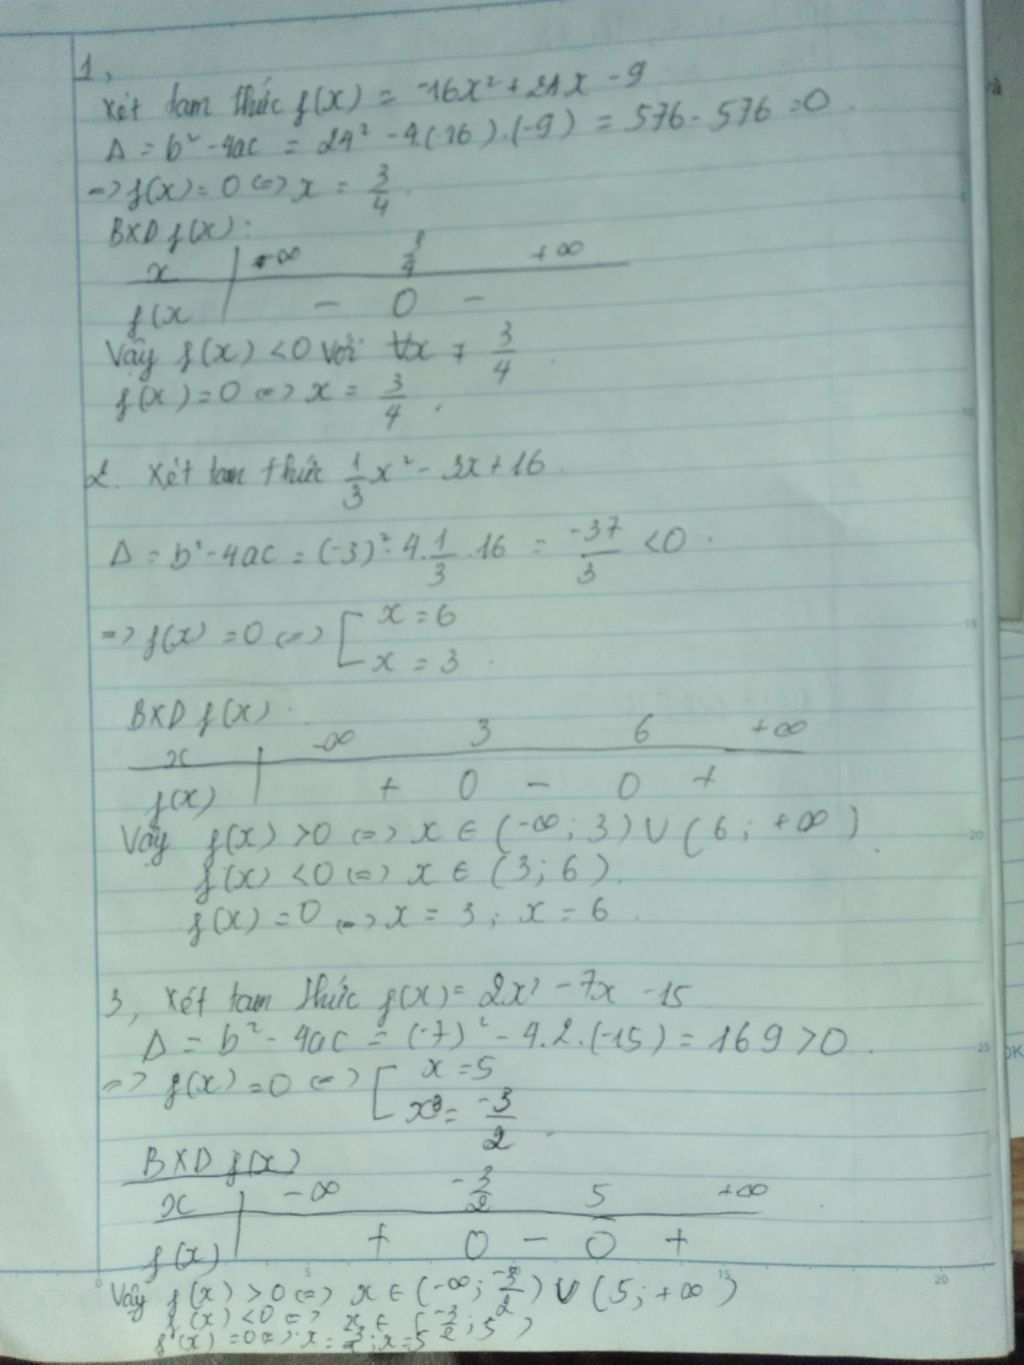 1,
Xét tam thức f(x) = -16x² + 24x - 9
Δ = b² - 4ac = 24² - 4.(-16).(-9) = 576 - 576 = 0.
=> f(x) = 0 <=> x = 3/4.
BXD f(x):
x | -∞ 3/4 +∞
f(x | - 0 -
Vậy f(x) < 0 với ∀x ≠ 3/4.
f(x) = 0 <=> x = 3/4.
2. Xét tam thức 1/3 x² - 3x + 16.
Δ = b² - 4ac = (-3)² - 4.1/3.16 = -37/3 < 0.
=> f(x) = 0 <=> [ x = 6
x = 3.
BXD f(x).
x | -∞ 3 6 +∞
f(x) | + 0 - 0 +
Vậy f(x) > 0 <=> x ∈ (-∞; 3) ∪ (6; +∞).
f(x) < 0 <=> x ∈ (3; 6).
f(x) = 0 <=> x = 3; x = 6.
3, Xét tam thức f(x) = 2x² - 7x - 15
Δ = b² - 4ac = (-7)² - 4.2.(-15) = 169 > 0.
=> f(x) = 0 <=> [ x = 5
x = -3/2.
BXD f(x)
x | -∞ -3/2 5 +∞
f(x) | + 0 - 0 +
Vậy f(x) > 0 <=> x ∈ (-∞; -3/2) ∪ (5; +∞)
f(x) < 0 <=> x ∈ (-3/2; 5)
f(x) = 0 <=> x = -3/2; x = 5
0 5 15 20